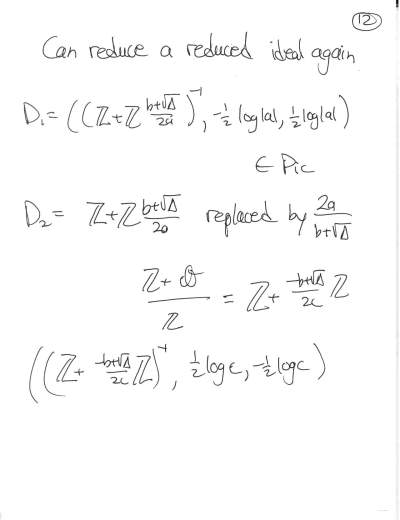 12
Can reduce a reduced ideal again
D₁ = ((ℤ+ℤ (b+√Δ)/2a)⁻¹, -½ log|a|, ½ log|a|)
∈ Pic
D₂ = ℤ+ℤ (b+√Δ)/2a replaced by 2a/(b+√Δ)
(ℤ+𝒪)/ℤ = ℤ + (-b+√Δ)/2c ℤ
((ℤ+ (-b+√Δ)/2c ℤ)⁻¹, ½ log c, -½ log c)